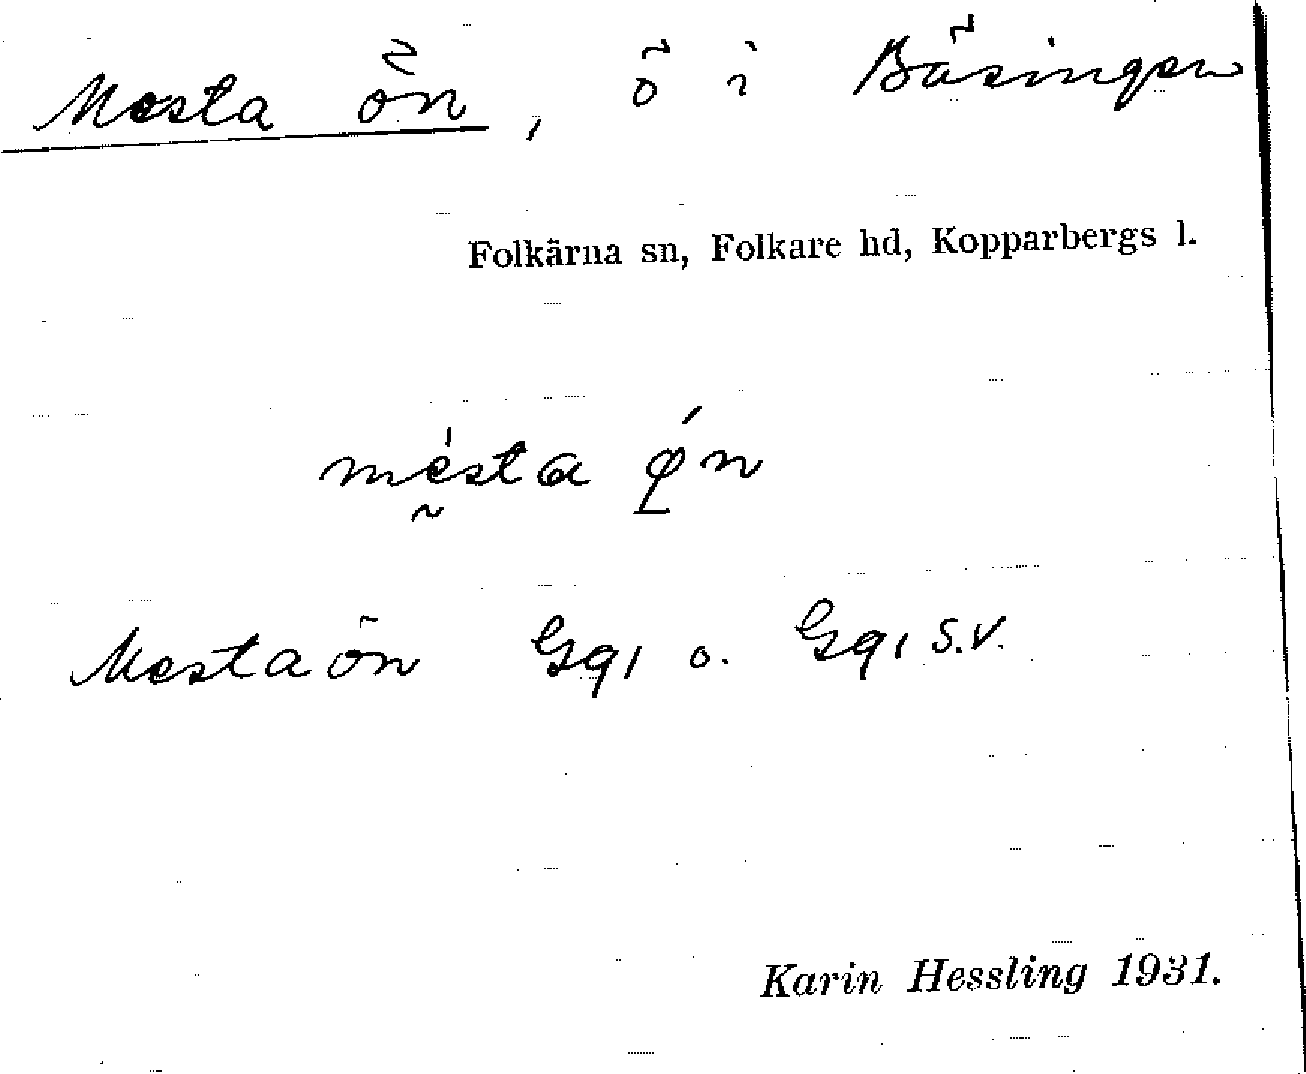 Mesta ön, ö i Bäsingen
Folkärna sn, Folkare hd, Kopparbergs l.
mésta ǿn
Mestaön Gq1 o. Gq1 S.V.
Karin Hessling 1931.